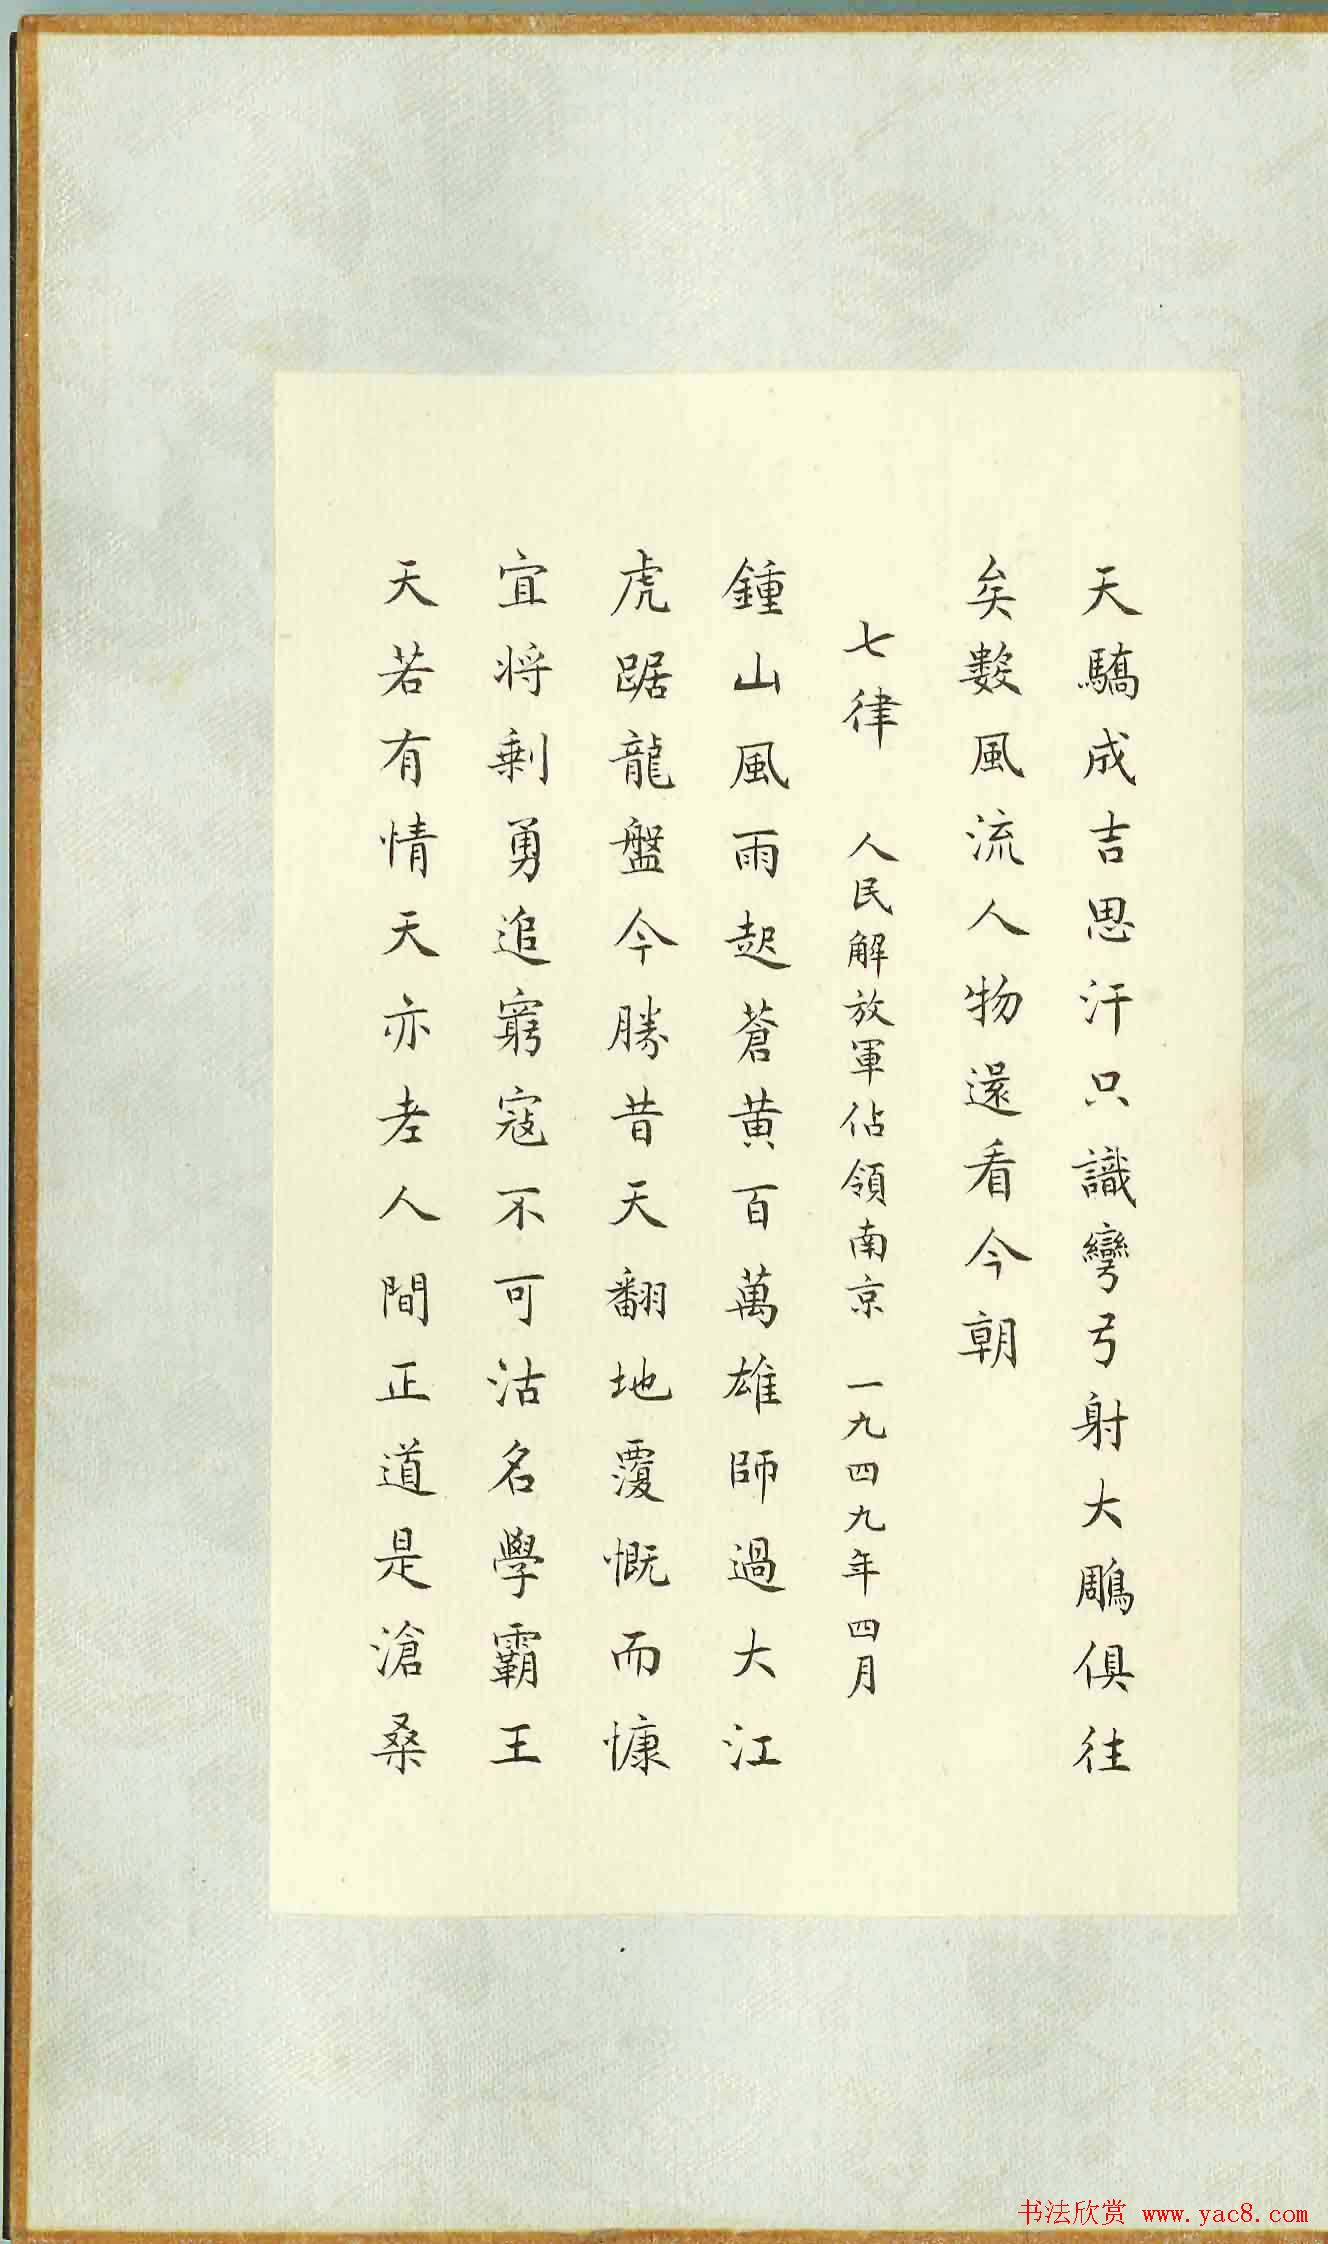 天驕成吉思汗只識彎弓射大鵰俱往
矣數風流人物還看今朝
七律 人民解放軍佔領南京 一九四九年四月
鍾山風雨起蒼黄百萬雄師過大江
虎踞龍盤今勝昔天翻地覆慨而慷
宜將剩勇追窮寇不可沽名學霸王
天若有情天亦老人間正道是滄桑
书法欣赏 www.yac8.com